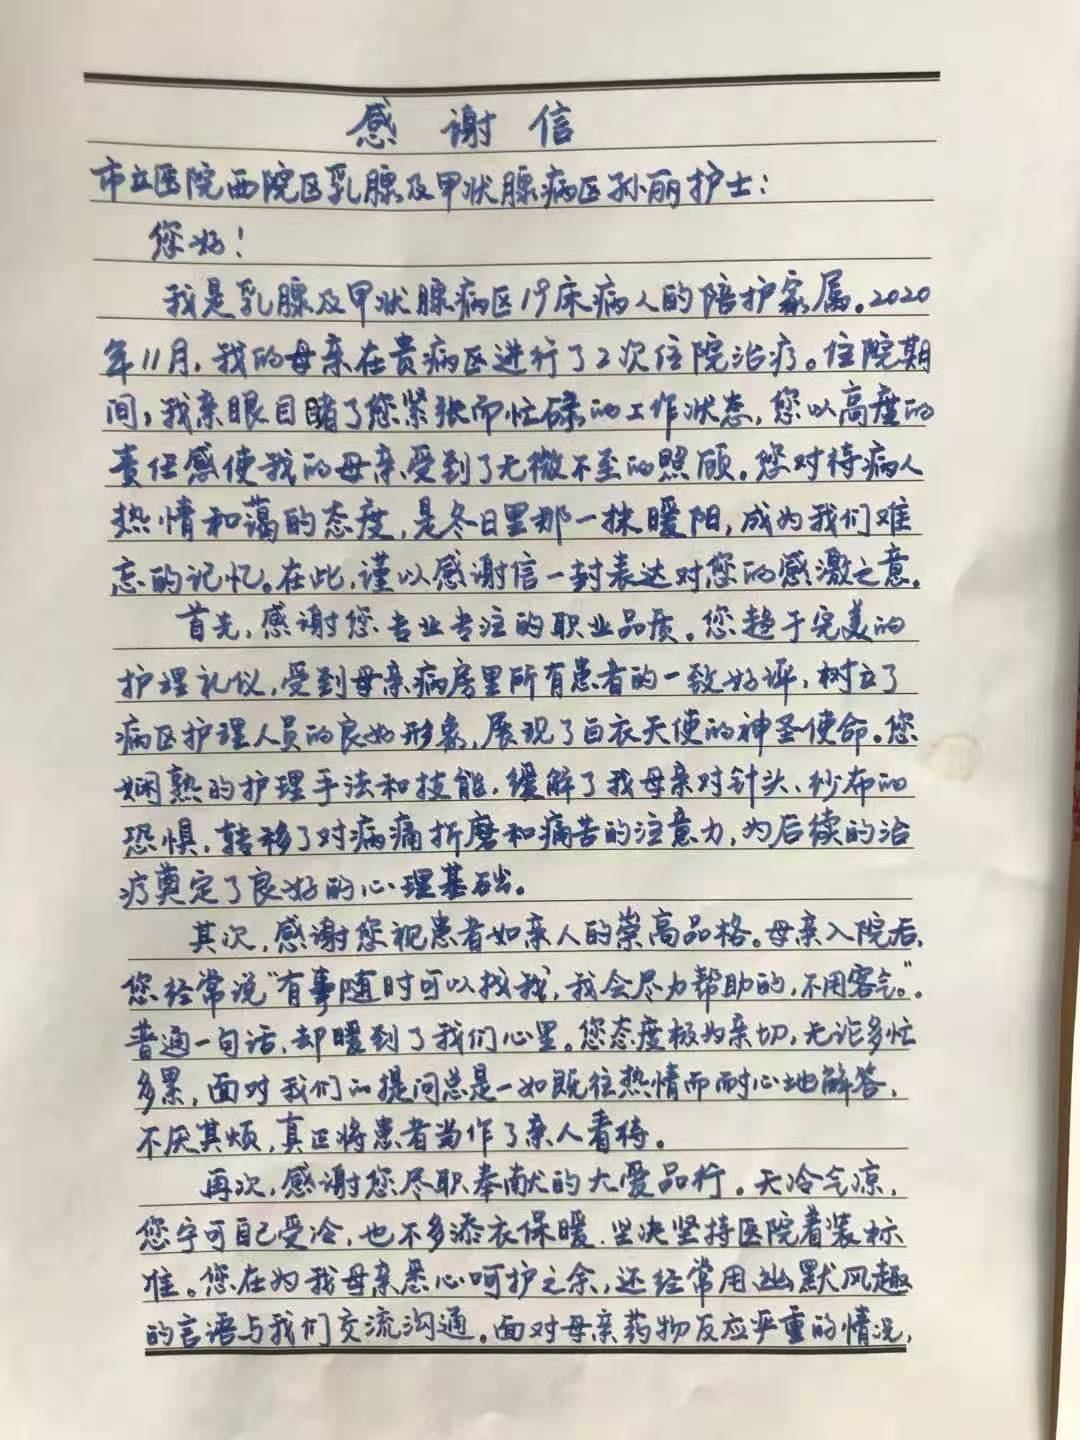 感谢信
市立医院西院区乳腺及甲状腺病区孙丽护士：
您好！
我是乳腺及甲状腺病区19床病人的陪护家属。2020
年11月，我的母亲在贵病区进行了2次住院治疗。住院期
间，我亲眼目睹了您紧张而忙碌的工作状态，您以高度的
责任感使我的母亲受到了无微不至的照顾。您对待病人
热情和蔼的态度，是冬日里那一抹暖阳，成为我们难
忘的记忆。在此，谨以感谢信一封表达对您的感激之意。
首先，感谢您专业专注的职业品质。您趋于完美的
护理礼仪，受到母亲病房里所有患者的一致好评，树立了
病区护理人员的良好形象，展现了白衣天使的神圣使命。您
娴熟的护理手法和技能，缓解了我母亲对针头、纱布的
恐惧，转移了对病痛折磨和痛苦的注意力，为后续的治
疗奠定了良好的心理基础。
其次，感谢您视患者如亲人的崇高品格。母亲入院后，
您经常说“有事随时可以找我，我会尽力帮助的，不用客气。”
普通一句话，却暖到了我们心里。您态度极为亲切，无论多忙
多累，面对我们的提问总是一如既往热情而耐心地解答，
不厌其烦，真正将患者当作了亲人看待。
再次，感谢您尽职奉献的大爱品行。天冷气凉，
您宁可自己受冷，也不多添衣保暖，坚决坚持医院着装标
准。您在为我母亲悉心呵护之余，还经常用幽默风趣
的言语与我们交流沟通。面对母亲药物反应严重的情况，